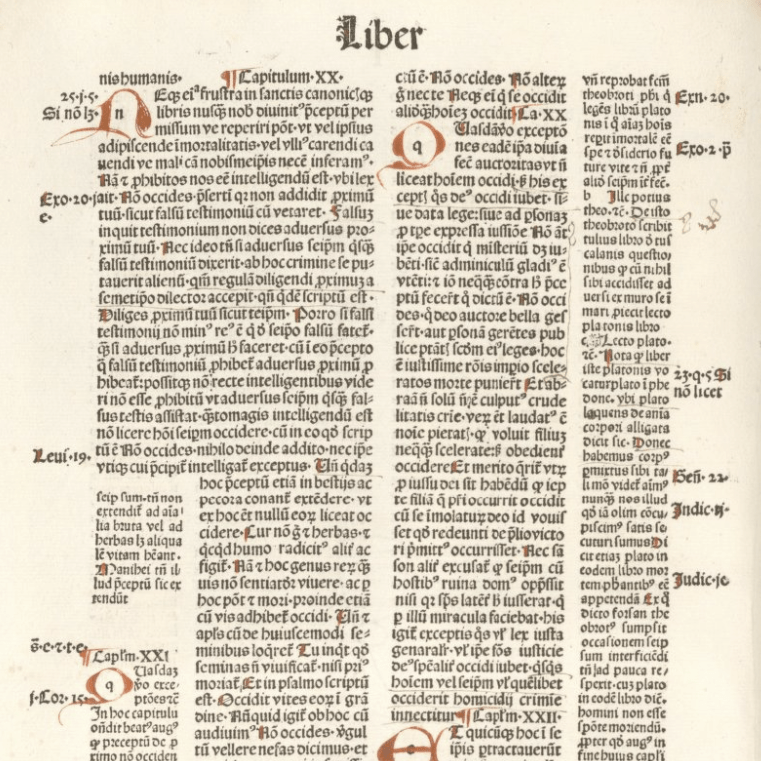 Liber
nis humanis.
¶ Capitulum. XX.
25. j. 5.
Si nõ lꝫ.
Neqꝫ ei⁹ frustra in sanctis canonicisqꝫ
libris nusqꝫ nob diuinit⁹ p̃ceptũ per
missum ve reperiri põt. vt vel ipsius
adipiscende ĩmortalitatis. vel vlli⁹ carendi ca
uendi ve mali cã nobismeipis necẽ inferam⁹.
Nã ⁊ ꝓhibitos nos eẽ intelligendũ est. vbi lex
Exo. 20.
ait. Nõ occides. p̃serti qr non addidit ꝓximũ
tuũ. sicut falsũ testimoniũ cũ vetaret. Falsuꝫ
inquit testimonium non dices aduersus pro-
ximũ tuũ. Nec ideo tñ si aduersus seip̃m qsqꝫ
falsũ testimoniũ dixerit. ab hoc crimine se pu-
tauerit alienũ. qm̃ regulã diligendi ꝓximuꝫ a
semetip̃o dilector accepit. qñ qdẽ scriptũ est.
Diliges ꝓximũ tuũ sicut teip̃m. Porro si falsũ
testimoniũ nõ min⁹ re⁹ ẽ q̃ ð seip̃o falsũ fatet̃.
q̃ si aduersus ꝓximũ h̃ faceret. cũ ĩ eo p̃cepto
q̃ falsũ testimoniũ ꝓhibet̃ aduersus ꝓximũ ꝓ
hibeat̃. possitqꝫ nõ recte intelligentibus vide
ri nõ esse ꝓhibitũ vt aduersus seip̃m qsqꝫ fal-
sus testis assistat. q̃tomagis intelligendũ est
nõ licere hõi seip̃m occidere. cũ in eo qð scrip
Leui. 19.
tũ ẽ Nõ occides. nihilo deinde addito. nec ip̃e
vtiqꝫ cui p̃cipit̃ intelligat̃ exceptus. Uñ qdaꝫ
hoc p̃ceptũ etiã in bestijs ac
pecora conant̃ extẽdere. vt
ex hoc ẽt nullũ eoꝝ liceat oc
cidere. Cur nõ g̃ ⁊ herbas. ⁊
qcqd humo radicit⁹ alit̃ ac
figit̃. Nã ⁊ hoc genus reꝝ q̃uis
non sentiat. ðr viuere. ac ꝑ
hoc põt ⁊ mori. proinde etiã
cũ vis adhibet̃ occidi. Uñ ⁊
apl̃s cũ de huiuscemodi se-
minibus loqret̃ Tu inqt qð
seminas ñ viuificat̃. nisi pri⁹
moriat̃. Et in psalmo scriptũ
est. Occidit vites eoꝝ ĩ grã
dine. Nũquid igit̃ ob hoc cũ
audiuim⁹ Nõ occides. v̓gul
tũ vellere nefas dicimus. et
seip sum. tñ non
extendit̃ ad aĩa
lia bruta vel ad
herbas lꝫ aliqua
lẽ vitam hẽant.
Manihei tñ il-
lud p̃ceptũ sic ex
tendũt
¶ Capl̃m. XXI
j. Cor. 15.
Quasdaꝫ
ṽo exce-
ptões ⁊c̃
In hoc capitulu
oñdit beat⁹ aug⁹
q̃ preceptũ de ꝓ
ximo nõ occiden
ciũ ẽ. Nõ occides. Nõ alteꝝ
g̃ nec te Neqꝫ ei q̃ se occidit
aliõqꝫ hoĩeꝫ occidit ¶ Ca. XX
Quasdã ṽo exceptõ
nes eadẽ ip̃a diuĩa
fec̃ auctoritas vt ñ
liceat hoĩem occidi. sꝫ his ex
cept̃ qs de⁹ occidi iubet. si-
ue data lege: siue ad ꝑsonaꝫ
ꝓ tꝑe expressa iussiõe Nõ aũt
ip̃e occidit q̃ misteriũ dꝫ iu-
bẽti. sic̃ adminiculũ gladi⁹ ẽ
vtẽti: ⁊ iõ neq̃q̃ cõtra h̃ p̃ce
ptũ fecer̃t q̃ dictũ ẽ. Nõ occi
des. q̃ deo auctore bella ges
ser̃t. aut ꝑsonã gerẽtes pub
lice ptãt̃ scðm ei⁹ leges. hoc
ẽ iustissime rõis imꝑio scele-
ratos morte punier̃t Et ab-
raã ñ solũ ñ ẽ culpat⁹ crude
litatis crĩe. verꝫ et laudat⁹ ẽ
noĩe pietat̃. q̃ voluit filiuꝫ
neq̃q̃ scelerate sꝫ obedient̃
occidere Et merito q̃rit̃ vtꝝ
ꝓ iussu dei sit habẽdũ q̃ iep
te filiã q̃ p̃ri occurrit occidit
cũ se ĩmolaturꝫ deo id vouis
set qð redeunti de p̃lio victo
ri p̃mit⁹ occurrisset. Nec sã
son alit̃ excusat̃ q̃ seip̃m cũ
hostib⁹ ruina dom⁹ opp̃ssit
nisi qr sp̃s latẽt̃ h̃ iusserat. q̃
ꝑ illũ miracula faciebat. his
igit̃ exceptis qs vl̃ lex iusta
generalr̃. vl̃ ip̃e fõs iusticie
de⁹ spẽalr̃ occidi iubet. qsqs
hoĩem vel seip̃m vl̃ quẽlibet
occiderit homicidij crimĩe
innectitur ¶ Capl̃m. XXII.
Et quicũqꝫ hoc ĩ se
ip̃is ꝑtrauerũt
vñ reprobat fcm̃
theobroti. p̃bi q̃
legẽs librũ plato
nis ĩ q̃ aĩaꝫ hoĩs
reꝑit ĩmortalẽ eẽ
spe ⁊ ðsiderio fu
ture vite
alid seip̃m ĩt̃fec̃.
b Ille potius
theo. ⁊c̃. De isto
theobroto scribit
tulius libro ð tus
culanis questio
nibus q̃ cũ nihil
sibi accidisset ad
uersi ex muro se ĩ
mari. ꝓiecit lecto
platonis libro
c Lecto plato-
⁊c̃. Nota q̃ liber
iste platonis vo
catur plato ĩ phe
done. vbi plato
loquens de aĩa
corpori alligata
dicit sic. Donec
habemus corp⁹
ꝑmixtus sibi ta-
li mõ videt̃ aĩm⁹
nunqꝫ nos illud
qð iã olim cõcu-
piscim⁹ satis se-
cuturi sumus Di
cit etiaꝫ plato in
eodem libro mor
tem
appetendã Ex q̃
dicto forsan the
obrot⁹ sumpsit
occasionem seip
sum interficiẽdi
tñ ad pauca re-
spexit. cuꝫ plato
in codẽ libro dic̃.
homini non esse
spõte moriendũ.
ꝓpter qð aug⁹ in
fine huius capl̃i
Exn. 20.
Exo. 2. p̃
23. q. 5 Si
nõ licet
Geñ. 22.
Indic. ij.
Judic. je